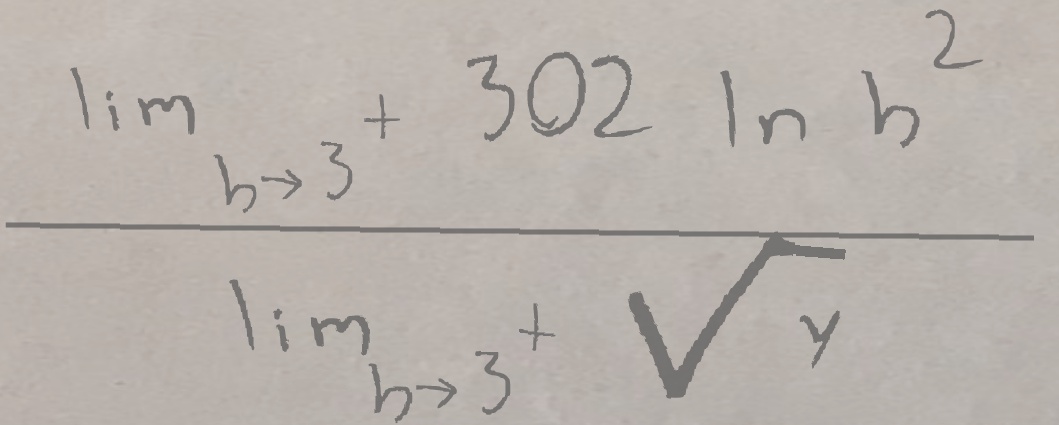 lim h→3⁺ 302 ln h²
lim h→3⁺ √y